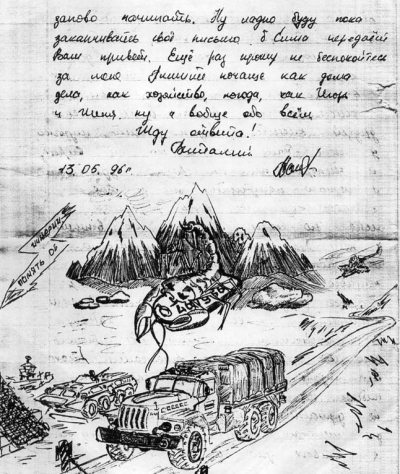 заново начинать. Ну ладно буду пока
заканчивать своё письмо. Сима передаёт
Вам привет. Ещё раз прошу не беспокойтесь
за меня Пишите почаще как дома
дела, как хозяйство, погода, как Игорь
и Женя, ну и вообще обо всём
Жду ответа!
Виталий
13.05.96г